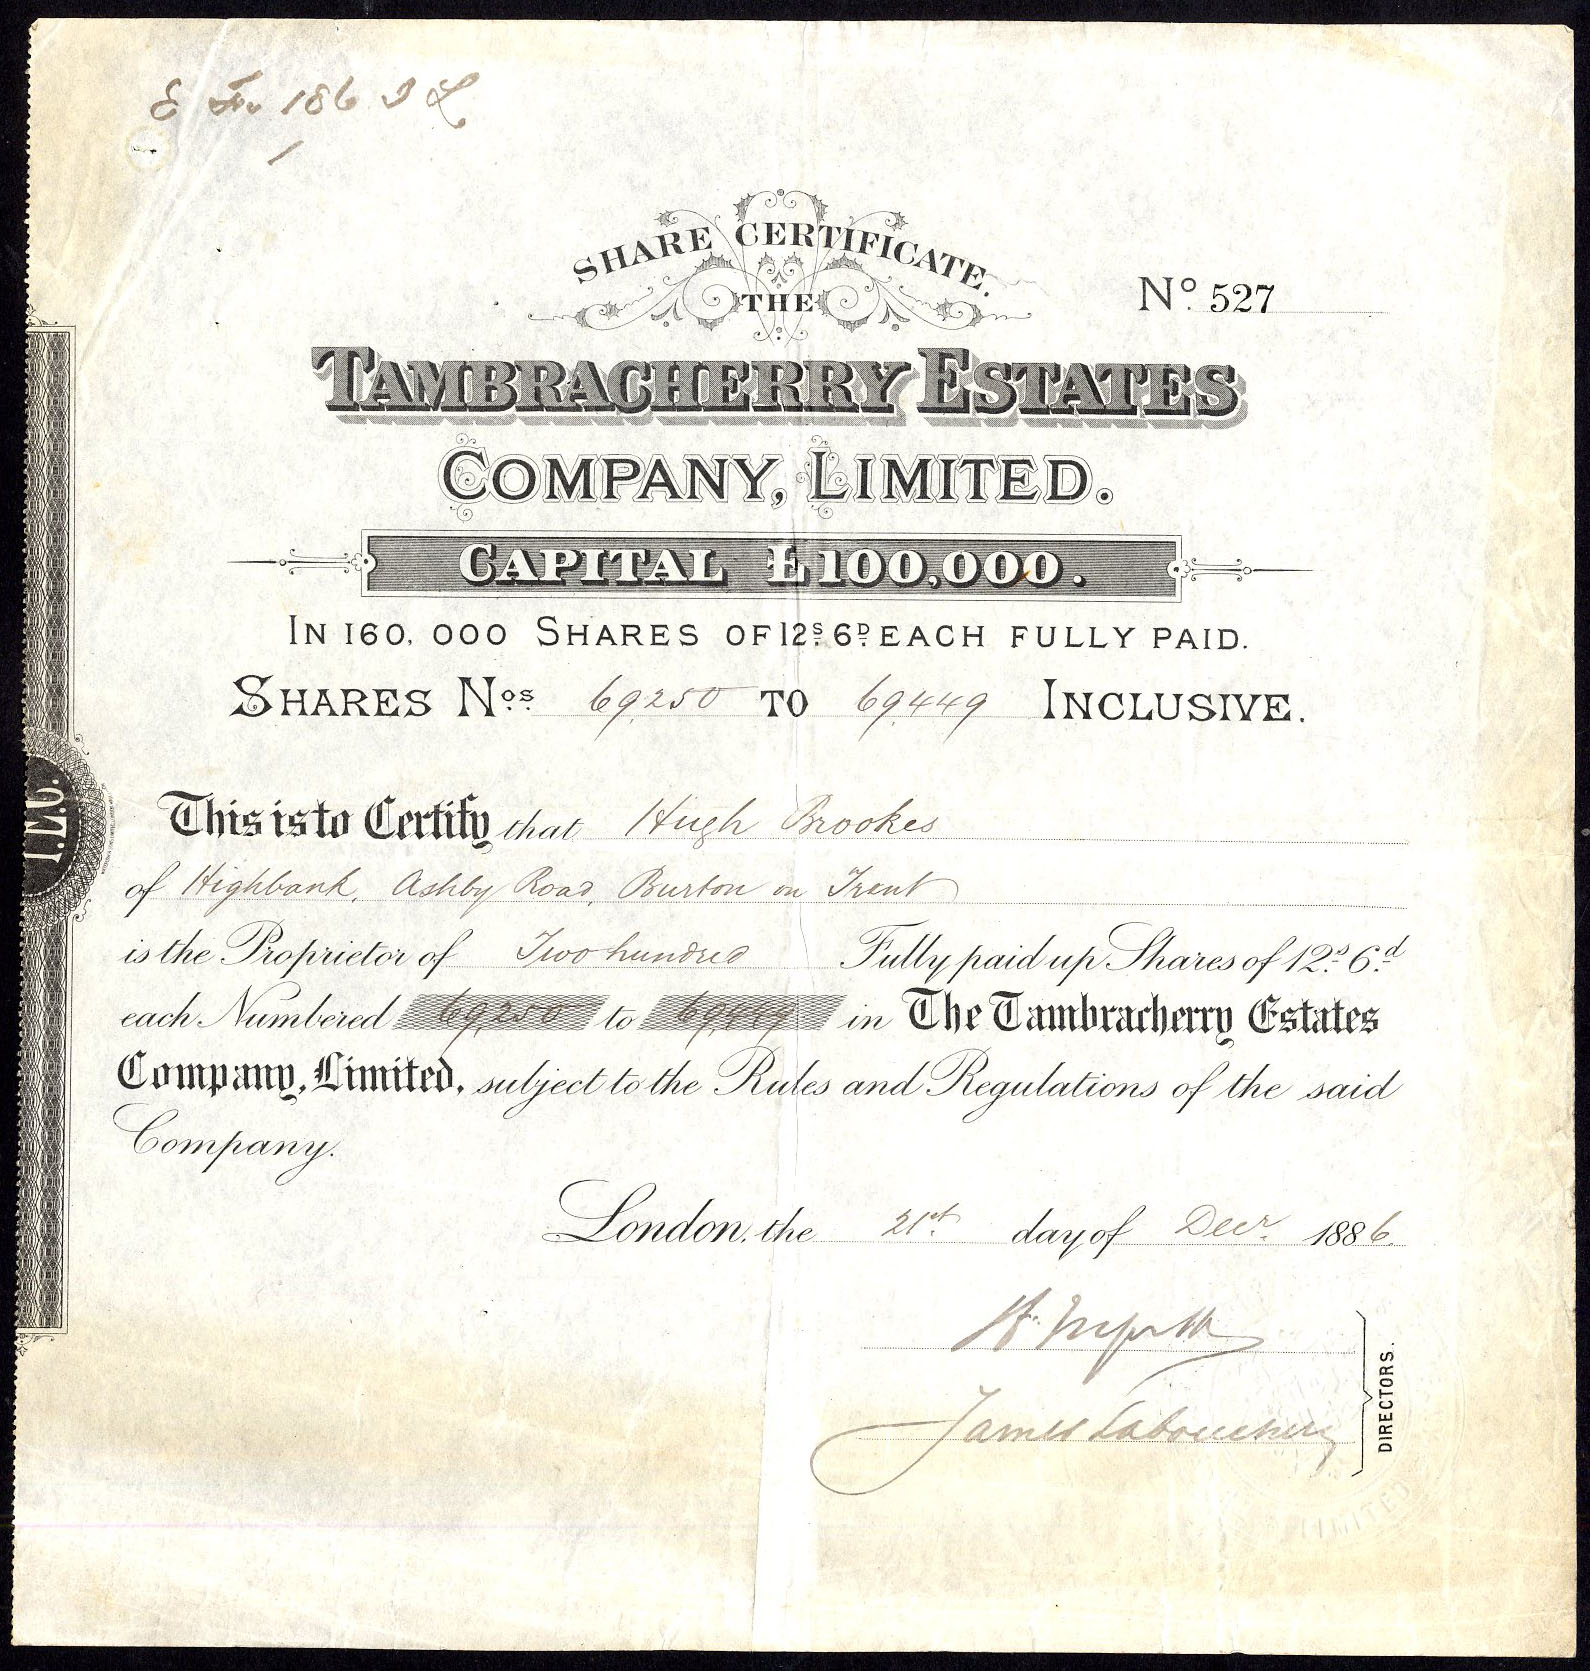 186
SHARE CERTIFICATE.
THE
Nº 527
TAMBRACHERRY ESTATES
COMPANY, LIMITED.
CAPITAL £100,000.
IN 160,000 SHARES OF 12s. 6D. EACH FULLY PAID.
SHARES Nos. 69250 TO 69449 INCLUSIVE.
This is to Certify that Hugh Brookes
of Highbank, Ashby Road, Burton on Trent
is the Proprietor of Two hundred Fully paid up Shares of 12s. 6d.
each Numbered 69250 to 69449 in The Tambracherry Estates
Company, Limited, subject to the Rules and Regulations of the said
Company.
London, the 21st. day of Decr. 1886
James Labouchere
DIRECTORS.
LIMITED